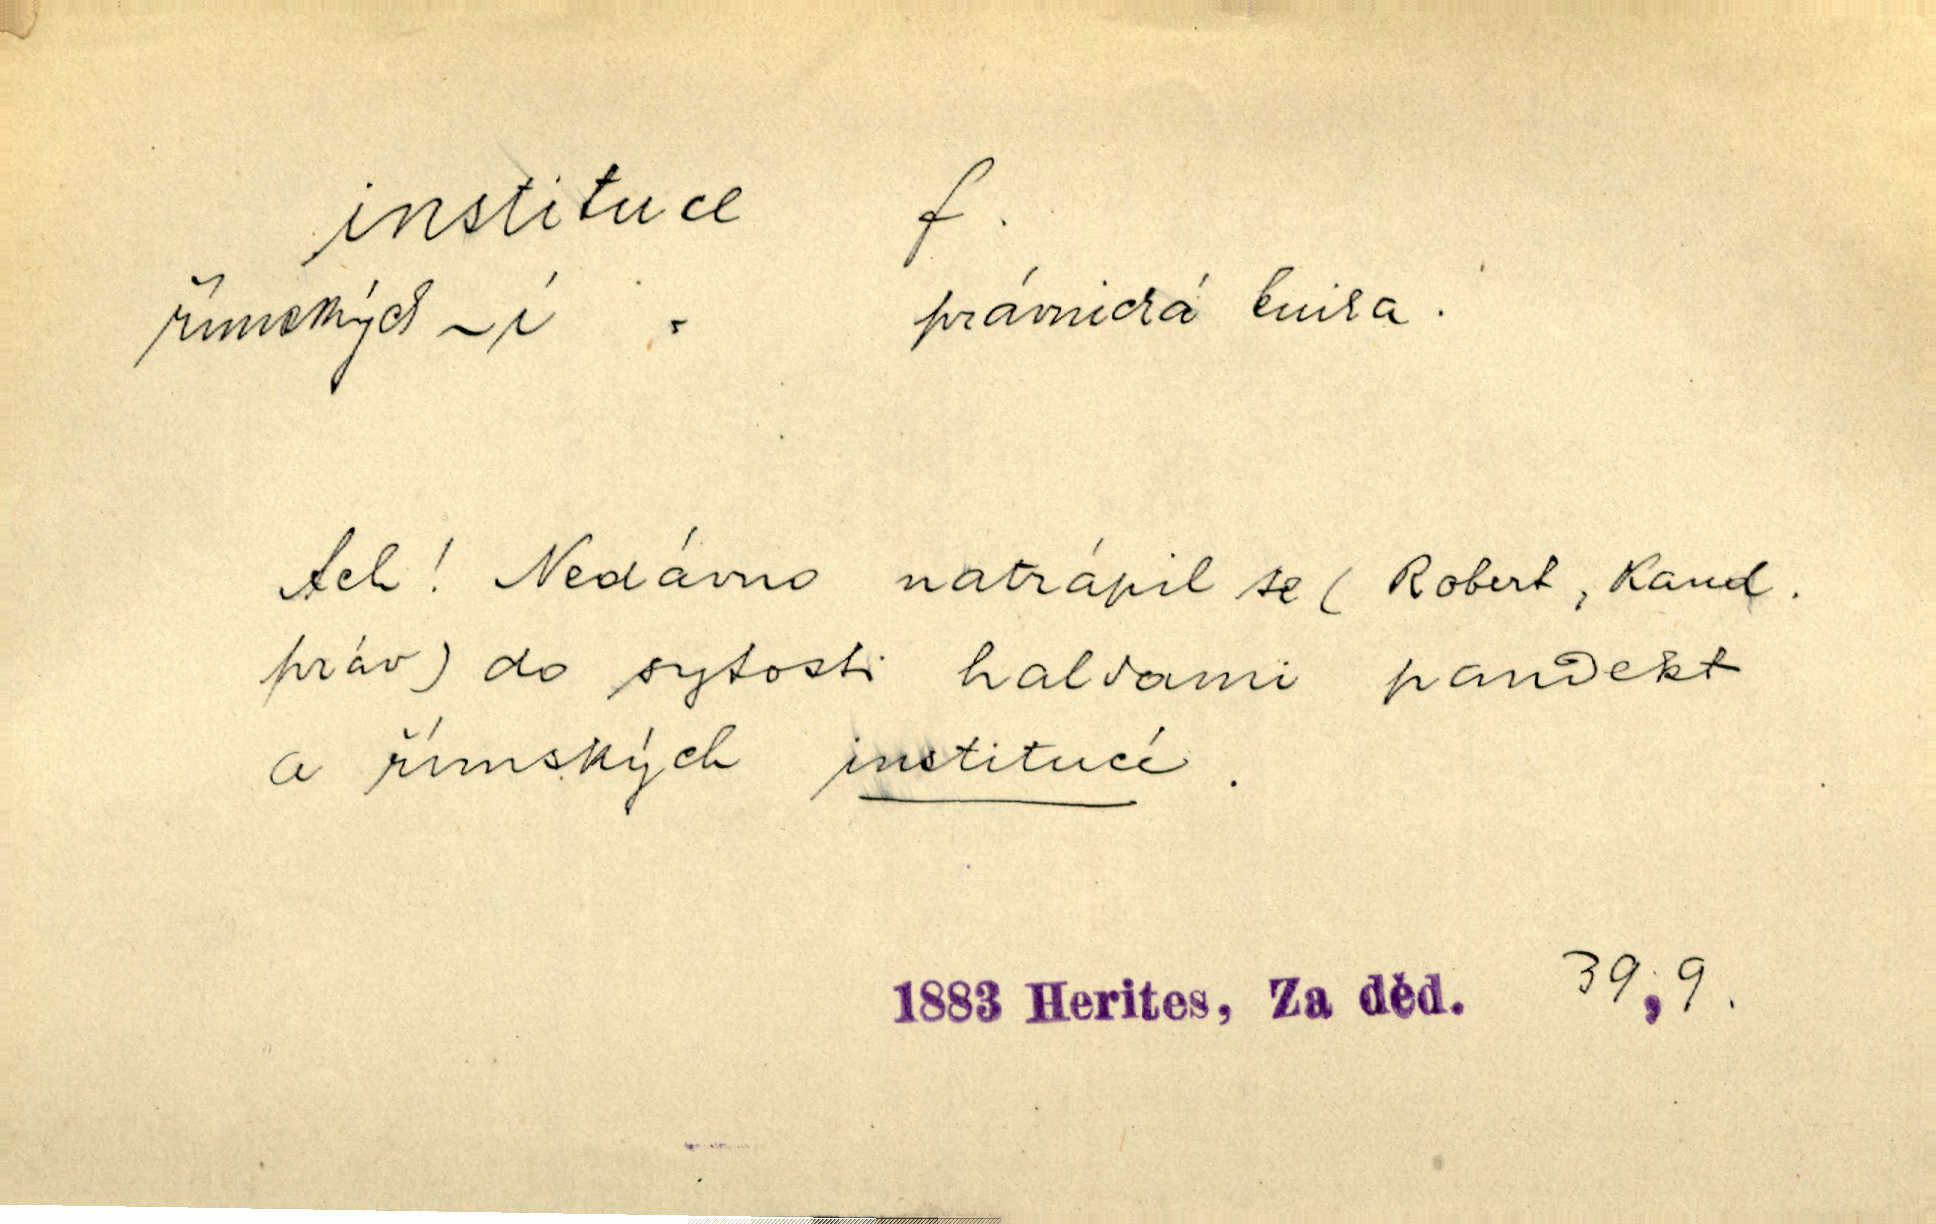 instituce f.
římských ~í . právnická kniha.
Ach! Nedávno natrápil se (Robert, Kand.
práv) do sytosti haldami pandekt
a římských institucí.
1883 Herites, Za děd. 39,9.